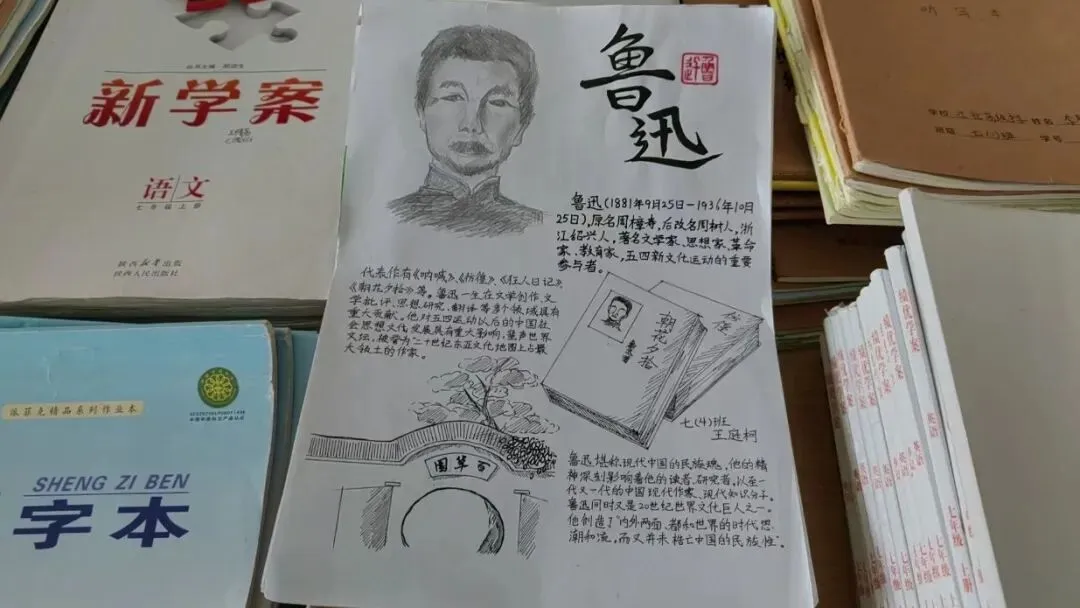 新学案
语文
七年级上册
陕西人民出版社
SHENG ZI BEN
字本
鲁迅
鲁迅(1881年9月25日-1936年10月
25日),原名周樟寿,后改名周树人,浙
江绍兴人,著名文学家、思想家、革命
家、教育家,五四新文化运动的重要
参与者。
代表作有《呐喊》、《彷徨》、《狂人日记》、
《朝花夕拾》等。鲁迅一生在文学创作、文
学批评、思想研究、翻译等多个领域具有
重大贡献。他对五四运动以后的中国社
会思想文化发展具有重大影响,蜚声世界
文坛,被誉为"二十世纪东亚文化地图上占最
大领土的作家。
朝花夕拾
彷徨
七(4)班
王庭柯
园草百
鲁迅堪称现代中国的民族魂,他的精
神深刻影响着他的读者、研究者,以至一
代又一代的中国现代作家、现代知识分子。
鲁迅同时又是20世纪世界文化巨人之一。
他创造了"内外两面、都和世界的时代思
潮和流,而又并未梏亡中国的民族性"。
听写本
学校
姓名
班级
学号
绩优学案
英语
七年级
上册